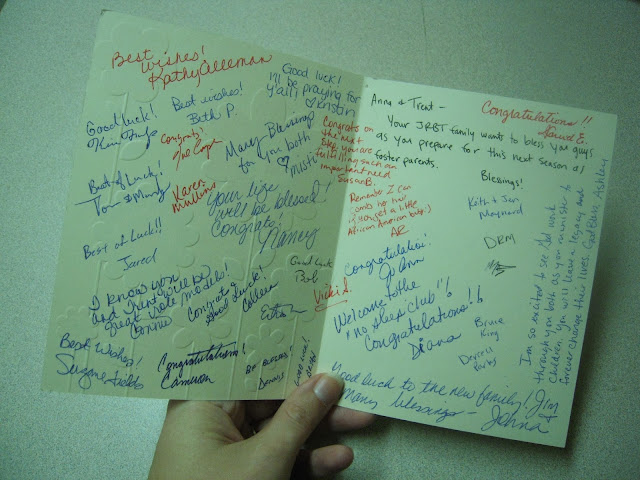 Best
Wishes!
Kathy Alleman
Good luck!
I'll be praying for
y'all!
♡ Kristin
Good luck!
Best wishes!
Beth P.
Congrats!
Many Blessings
for you both
♡
Misti
Best of Luck!
Tom & Mandy
Karen
Mullins
Your lives
will be blessed!
Congrats!
Nancy
Best of Luck!!
Jared
Good Luck
Bob
I know you
and Trent will be
great role models!
Connie
Congrats &
Good Luck!
Colleen
Best Wishes!
Suzanne Fields
Congratulations!
Cameron
Dennis
Anna & Trent -
Congratulations!!
Your JRBT family wants to bless you guys
as you prepare for this next season of
foster parents.
Blessings!
Congrats on
the next
step you are
fulfilling such an
important need
Susan B.
Remember I can
comb her hair
if you get a little
African American baby:)
AR
Keith & Jan
Maynard
DRM
Congratulations!
JoAnn
Vicki S.
Welcome to the
"no sleep club"!
Congratulations!!
Diana
Bruce
King
Good luck to the new family!
Many blessings -
Jim
&
Johna
I'm so excited to see God work
through you both as you minister to
children. You will leave a legacy and
forever change their lives. God Bless, Ashley